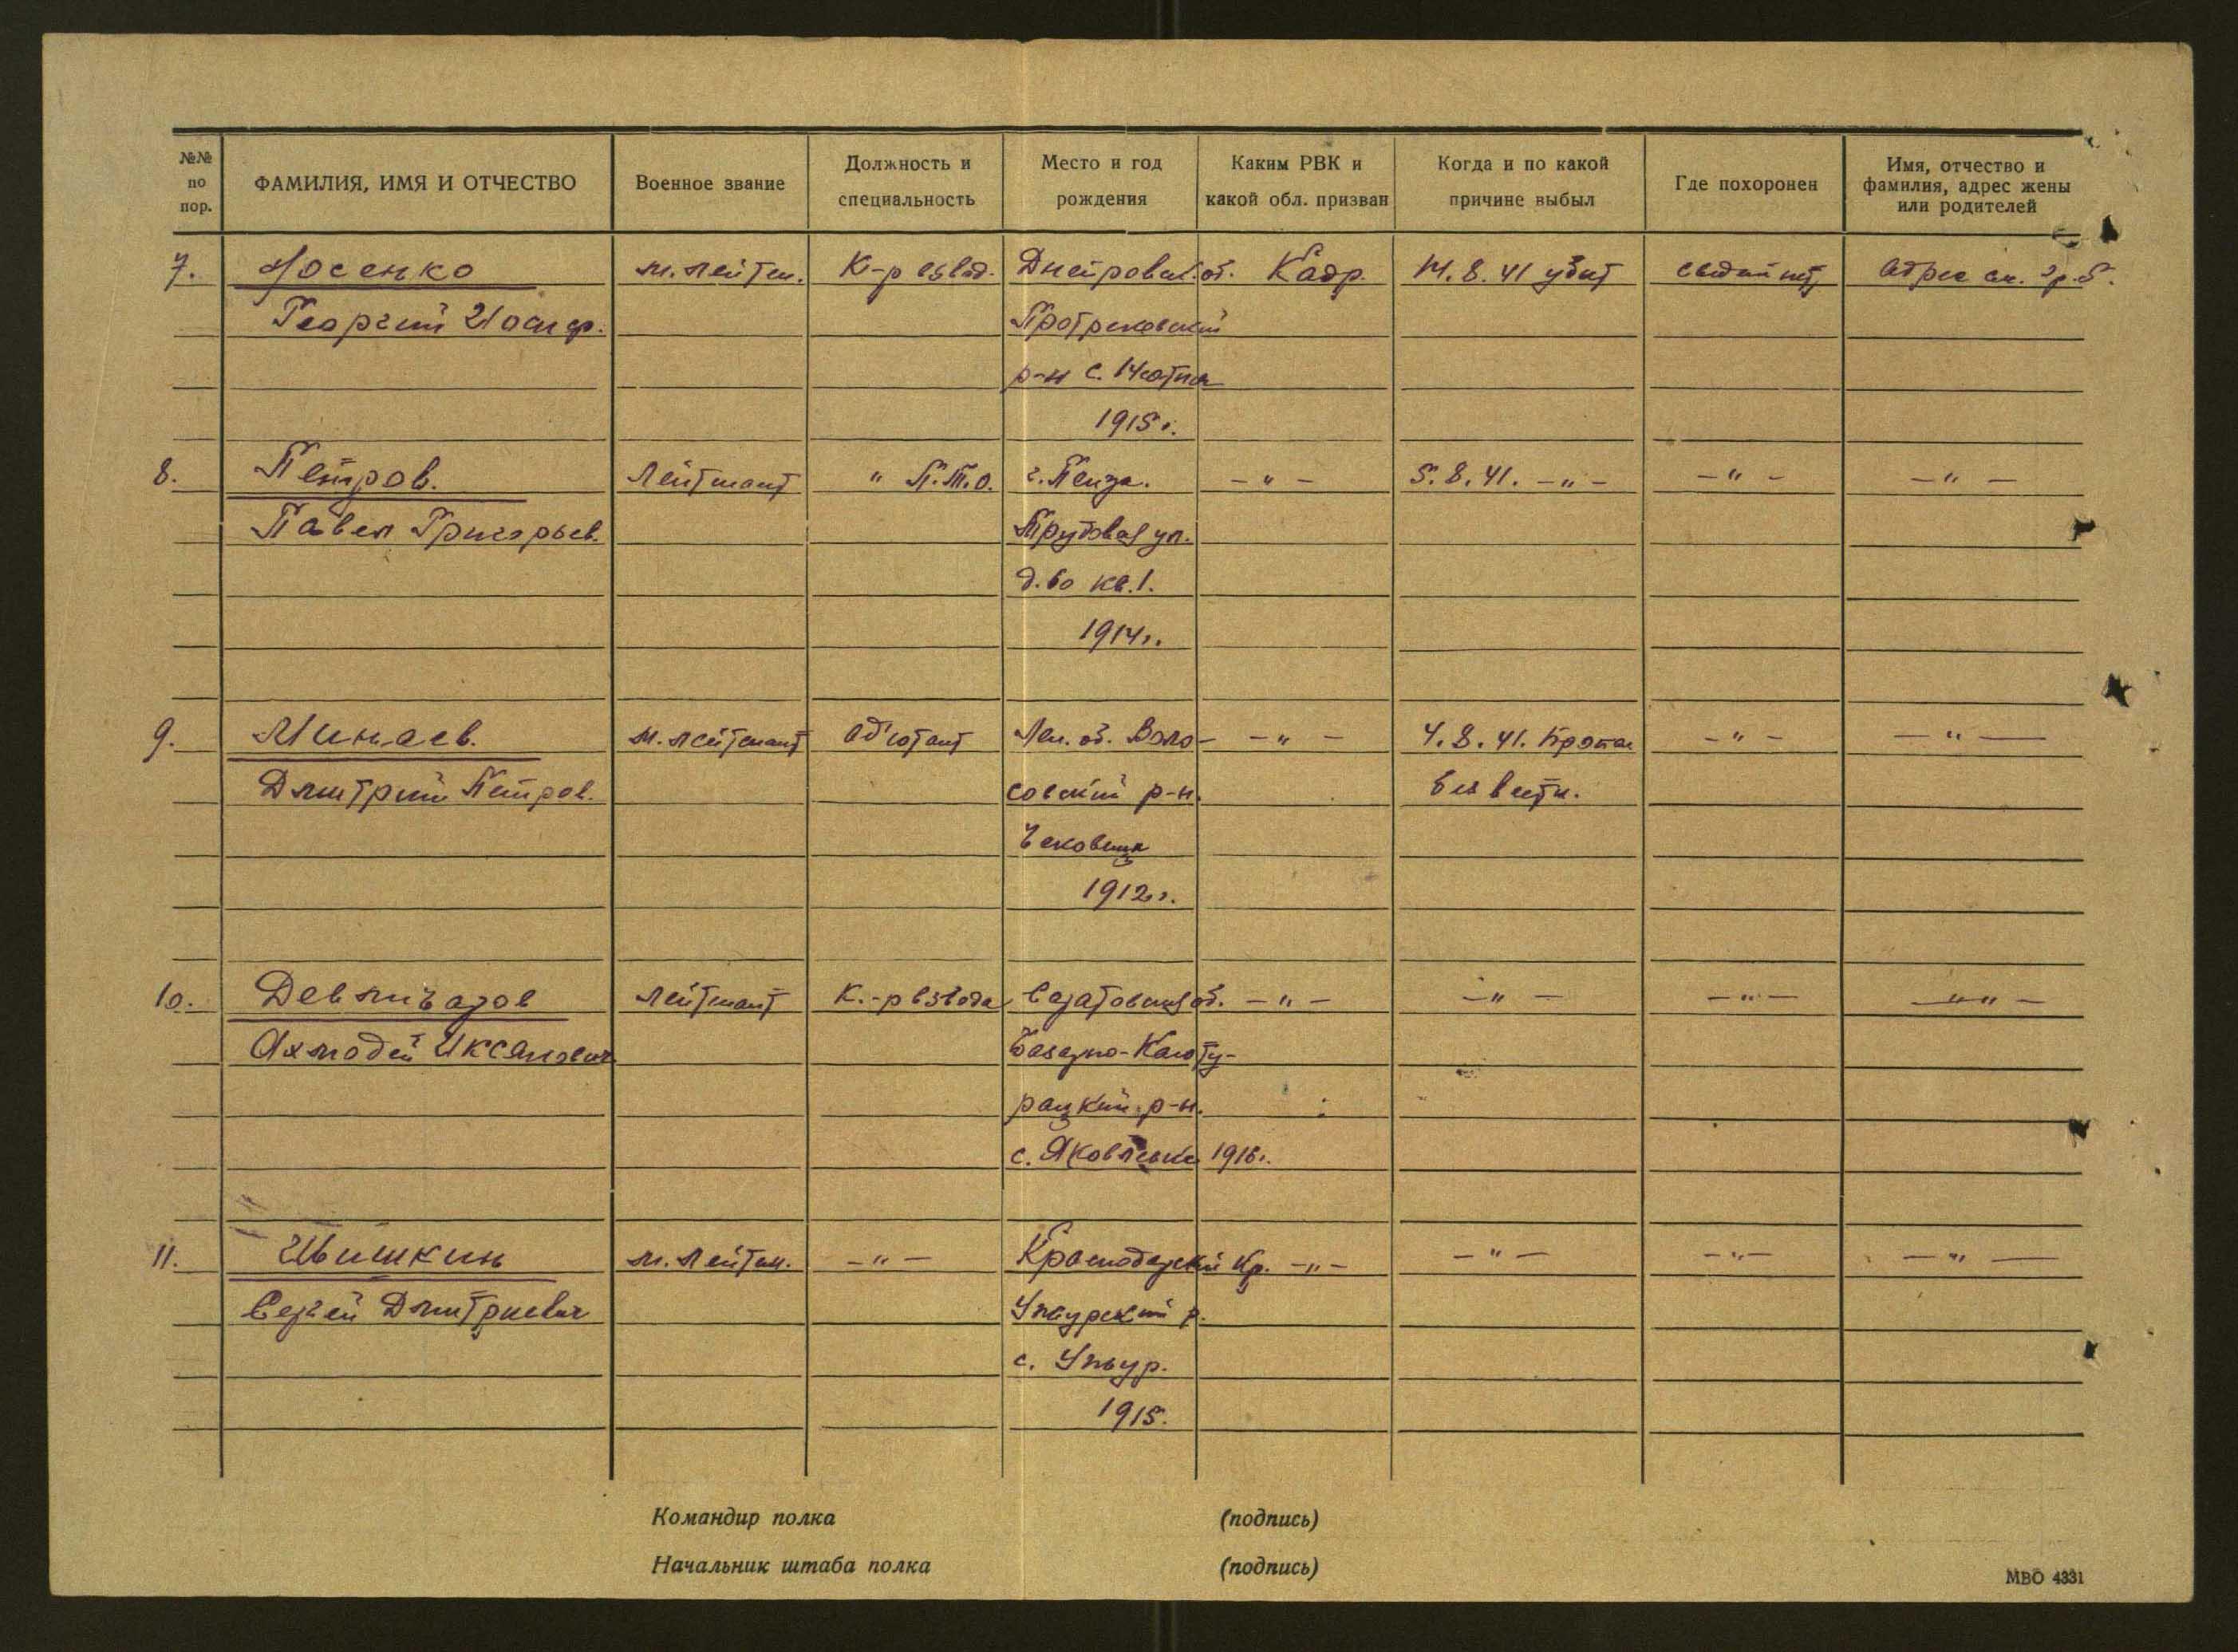 №№ по пор.
ФАМИЛИЯ, ИМЯ И ОТЧЕСТВО
Военное звание
Должность и специальность
Место и год рождения
Каким РВК и какой обл. призван
Когда и по какой причине выбыл
Где похоронен
Имя, отчество и фамилия, адрес жены или родителей
7. Носенко м. лейтен. К-р взвод. Днепровск. об. Кадр. 14.8.41 убит сведен нет Адрес см. гр. 5.
Георгий Иосиф.
р-н с.
1915 г.
8. Петров. Лейтенант " П.Т.О. г. Пенза. - " - 5.8.41. - " - - " - - " -
Павел Григорьев. Трудовая ул.
д. 60 кв. 1.
1914 г.
9. Минаев. м. лейтенант Ад'ютант Лен. об. Воло- - " - 4.8.41. Пропал - " - - " -
Дмитрий Петров. совский р-н. без вести.
1912 г.
10. Девличаров лейтенант К.-р взвода Саратовская об. - " - - " - - " - - " -
Базарно-Кара-
р-н.
с. 1916 г.
11. Ивишкин м. лейтен. - " - Краснодарский кр. - " - - " - - " - - " -
Сергей Дмитриевич р.
с.
1915.
Командир полка (подпись)
Начальник штаба полка (подпись)
МВО 4331